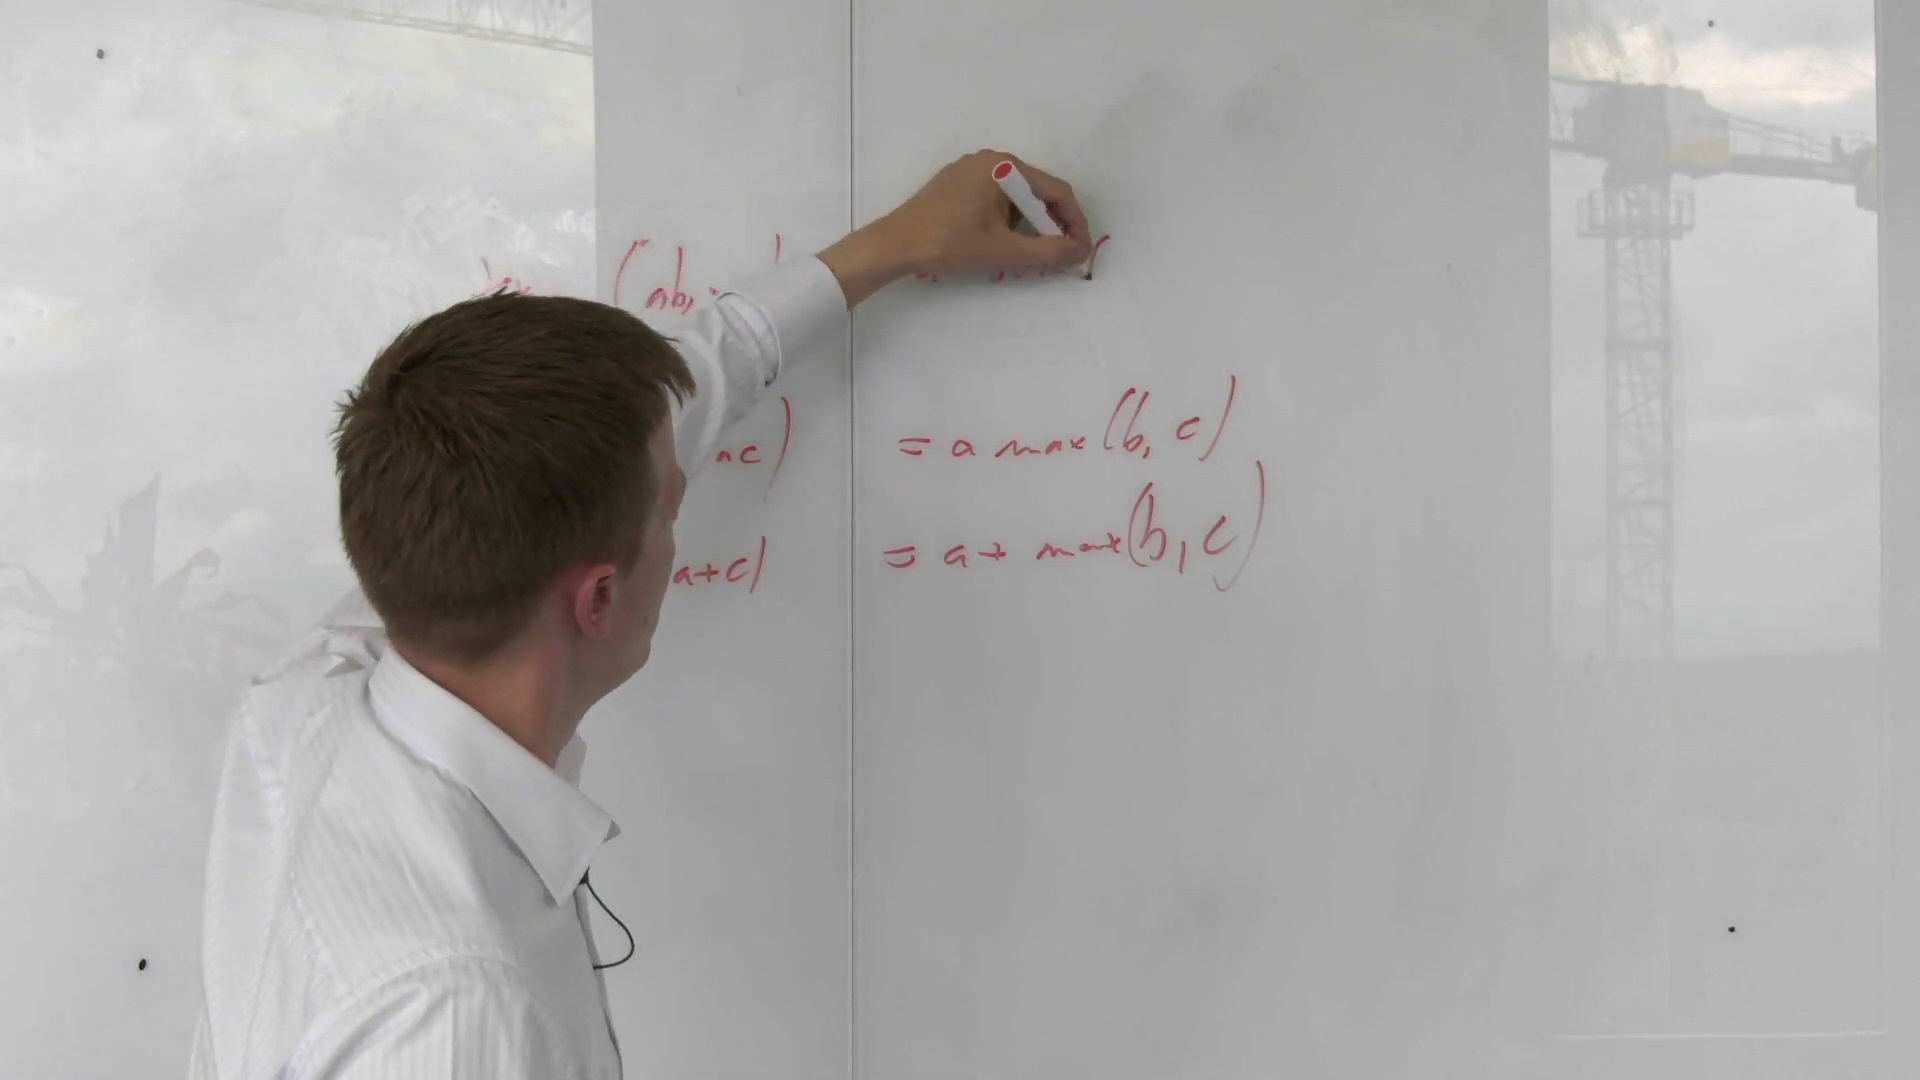 (ab,
ac) = a max(b, c)
a+c) = a+ max(b, c)